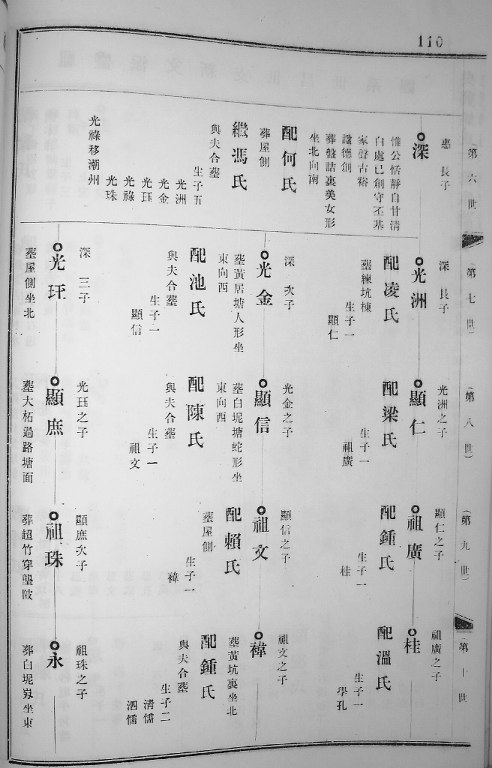 110
第六世
惠 長子
深
惟公恬靜自甘清
白處己創守丕基
家聲古裕
謹德創
葬盤詰裏美女形
坐北向南
配何氏
葬屋側
繼馮氏
與夫合塟
生子五
光洲
光金
光珏
光祿
光珠
光祿移潮州
第七世
深 長子
光洲
配凌氏
塟練坑棟
生子一
顯仁
深 次子
光金
塟黃居塘人形坐
東向西
配池氏
與夫合塟
生子一
顯信
深 三子
光玨
塟屋側坐北
第八世
光洲之子
顯仁
配梁氏
生子一
祖廣
光金之子
顯信
塟白坭塘蛇形坐
東向西
配陳氏
與夫合塟
生子一
祖文
光珏之子
顯庶
塟大柘過路塘面
第九世
顯仁之子
祖廣
配鍾氏
生子一
桂
顯信之子
祖文
配賴氏
塟屋側
生子一
禕
顯庶次子
祖珠
葬超竹穿龑陂
第十世
祖廣之子
桂
配溫氏
生子一
學孔
祖文之子
禕
塟黃坑裏坐北
配鍾氏
與夫合塟
生子二
清儒
泗儒
祖珠之子
永
葬白坭崀坐東